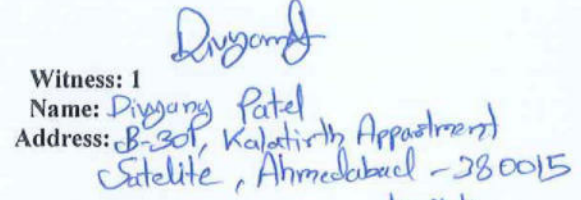 Divyang
Witness: 1
Name: Divyang Patel
Address: B-301, Kalatirth Appartment
Satelite, Ahmedabad - 380015